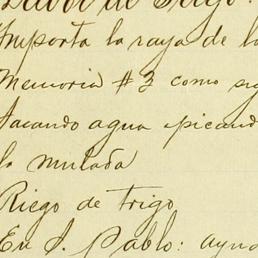 Labor de Trigo.
Importa la raya de la
Memoria #3 como sig
Sacando agua picand
la mulada
Riego de trigo
En S. Pablo: ayud